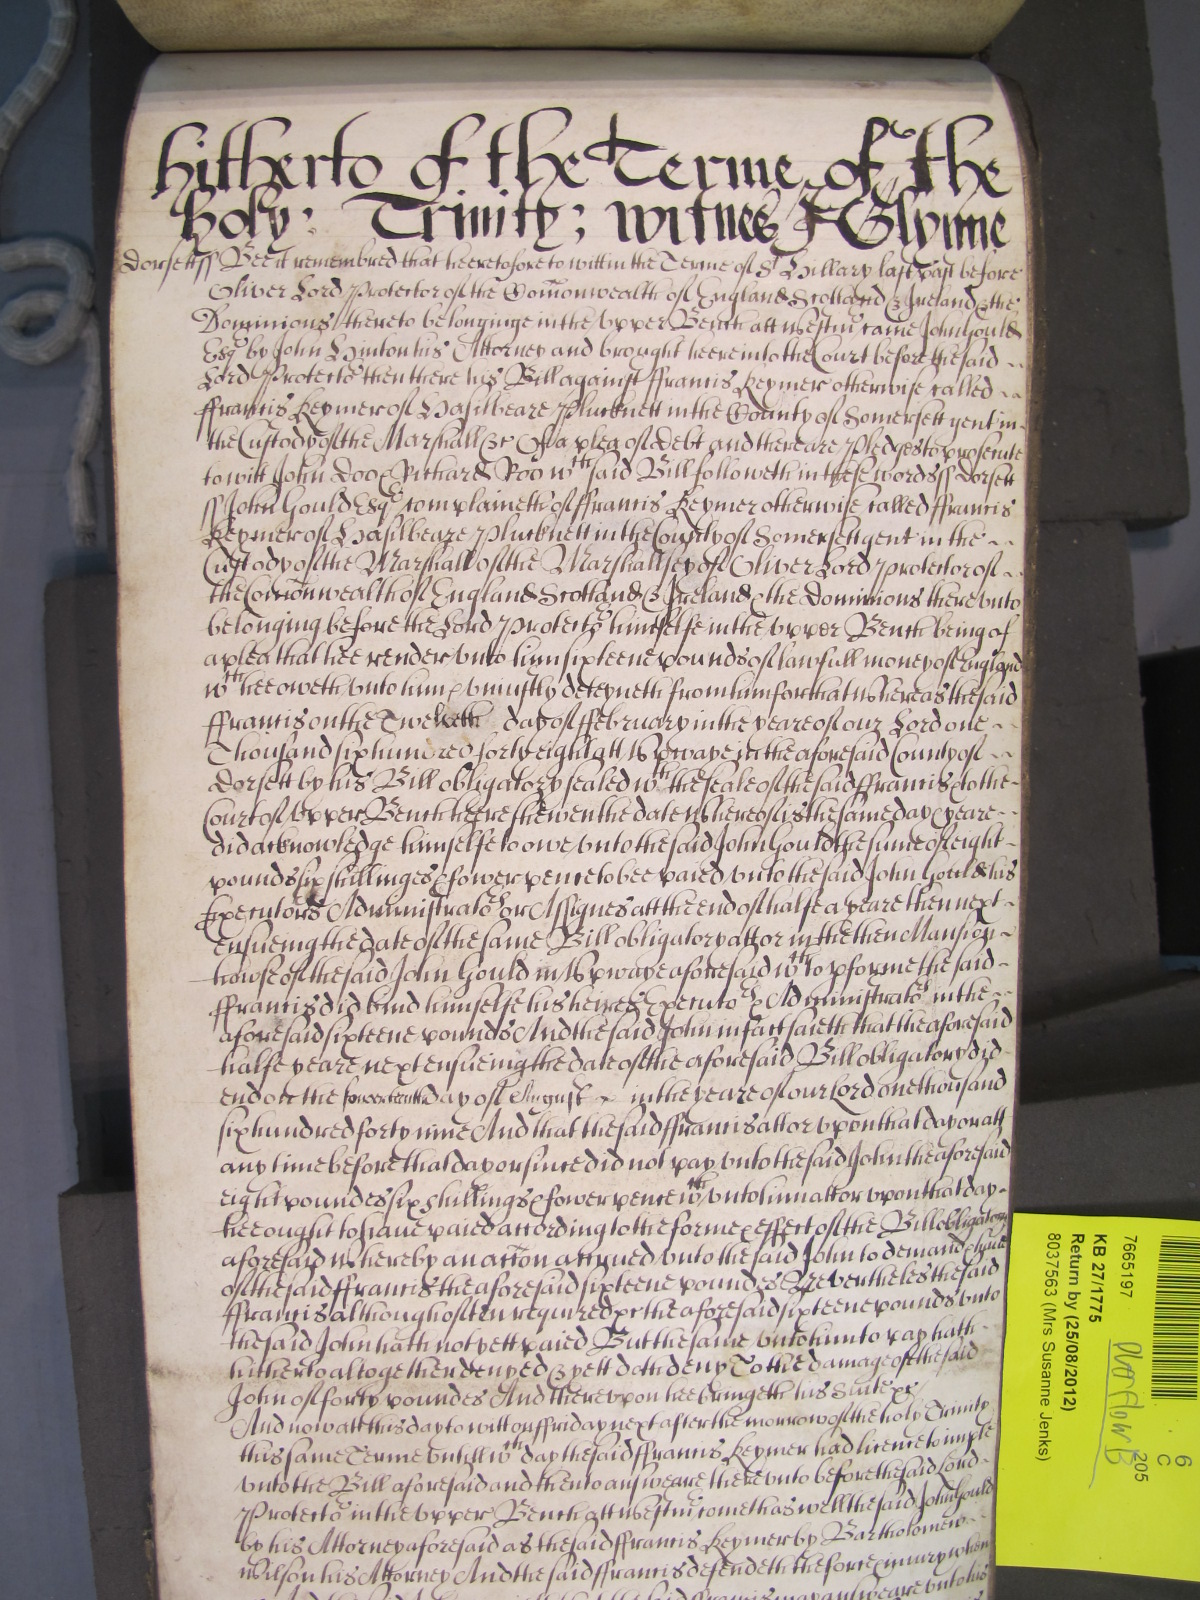 hitherto of the Terme of the
holy Trinity; witnes J Glynne
Dorsett ss Bee it remembred that heeretofore to witt in the Terme of St Hillary last past before
Oliver Lord Protector of the Comonwealth of England Scotland & Ireland & the
Dominions thereto belonginge in the upper Bench att Westmr came John Gould
Esqr by John Hinton his Attorney and brought heere into the Court before the said
Lord Protector then there his Bill against ffrancis Keymer otherwise called
ffrancis Keymer of Hasilbeare Plucknett in the County of Somersett gent in
the Custody of the Marshall &c Of a plea of debt and there are Pledges to prosecute
to witt John Doo & Richard Roo wch said Bill followeth in these words ss Dorsett
ss John Gould Esqr complaineth of ffrancis Keymer otherwise called ffrancis
Keymer of Hasilbeare Plucknett in the County of Somersett gent in the
Custody of the Marshall of the Marshallsey of Oliver Lord Protector of
the Comonwealth of England Scotland & Ireland & the Dominions there unto
belonging before the Lord Protector himselfe in the upper Bench being of
a plea that hee render unto him sixteene pounds of lawfull money of England
wch hee oweth unto him & uniustly deteyneth from him for that whereas the said
ffrancis on the Twelveth day of ffebruary in the yeare of our Lord one
Thousand six hundred forty eight att Upwaye in the aforesaid County of
Dorsett by his Bill obligatory sealed wth the seale of the said ffrancis & to the
Court of Upper Bench heere shewen the date whereof is the same day & yeare
did acknowledge himselfe to owe unto the said John Gould the sume of eight
pounds six shillinges & fower pence to bee paied unto the said John Gould his
Executors Administrators or Assignes att the end of halfe a yeare then next
ensueing the date of the same Bill obligatory att or in the then Mansion
howse of the said John Gould in Upwaye aforesaid wch to pforme the said
ffrancis did bind himselfe his heires Executors & Administrators in the
aforesaid sixteene pounds And the said John in fact saieth that the aforesaid
halfe yeare next ensueing the date of the aforesaid Bill obligatory did
end on the day of August in the yeare of our Lord one thousand
six hundred forty nine And that the said ffrancis att or upon that day or att
any time before that day or since did not pay unto the said John the aforesaid
eight poundes six shillings & fower pence wch unto him att or upon that day
hee ought to have paied according to the forme & effect of the Bill obligatory
aforesaid whereby an accon accrued unto the said John to demand & have
of the said ffrancis the aforesaid sixteene poundes Neverthelesse the said
ffrancis although often required &c the aforesaid sixteene pounds unto
the said John hath not yett paied But the same unto him to pay hath
hitherto altogether denyed & yett doth deny To the damage of the said
John of forty poundes And thereupon hee bringeth his Suite &c
And now att this day to witt on ffriday next after the morrow of the holy Trinity
this same Terme untill wch day the said ffrancis Keymer had licence to imple
unto the Bill aforesaid and then to answeare there unto before the said Lord
Protector in the upper Bench att Westmr cometh as well the said John Gould
by his Attorney aforesaid as the said ffrancis Keymer by Bartholomew
Wilson his Attorney And the said ffrancis defendeth the force & iniury when
7665197
KB 27/1775
Return by (25/08/2012)
8037563 (Mrs Susanne Jenks)
6
C
205